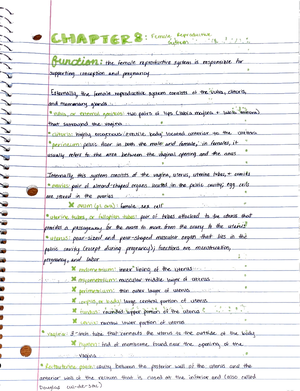 CHAPTER 8: Female Reproductive
System
function: the female reproductive system is responsible for
supporting conception and pregnancy
Externally, the female reproductive system consists of the vulva, clitoris,
and mammary glands
* vulva, or external genitalia: two pairs of lips (labia majora + labia minora)
that surround the vagina
* clitoris: highly erogenous erectile body located anterior to the urethra
* perineum: pelvic floor in both the male and female; in females, it
usually refers to the area between the vaginal opening and the anus
Internally this system consists of the vagina, uterus, uterine tubes, + ovaries
* ovaries: pair of almond-shaped organs located in the pelvic cavity; egg cells
are stored in the ovaries
* ovum (pl. ova): female sex cell
* uterine tubes, or fallopian tubes: pair of tubes attached to the uterus that
provide a passageway for the ovum to move from the ovary to the uterus
* uterus: pear-sized and pear-shaped muscular organ that lies in the
pelvic cavity (except during pregnancy); functions are menstruation,
pregnancy, and labor
* endometrium: inner lining of the uterus
* myometrium: muscular middle layer of uterus
* perimetrium: thin outer layer of uterus
* corpus, or body: large central portion of uterus
* fundus: rounded upper portion of the uterus
* cervix: narrow lower portion of uterus
* vagina: tube that connects the uterus to the outside of the body
* hymen: fold of membrane found near the opening of the
vagina
* rectouterine pouch: cavity between the posterior wall of the uterus and the
anterior wall of the rectum